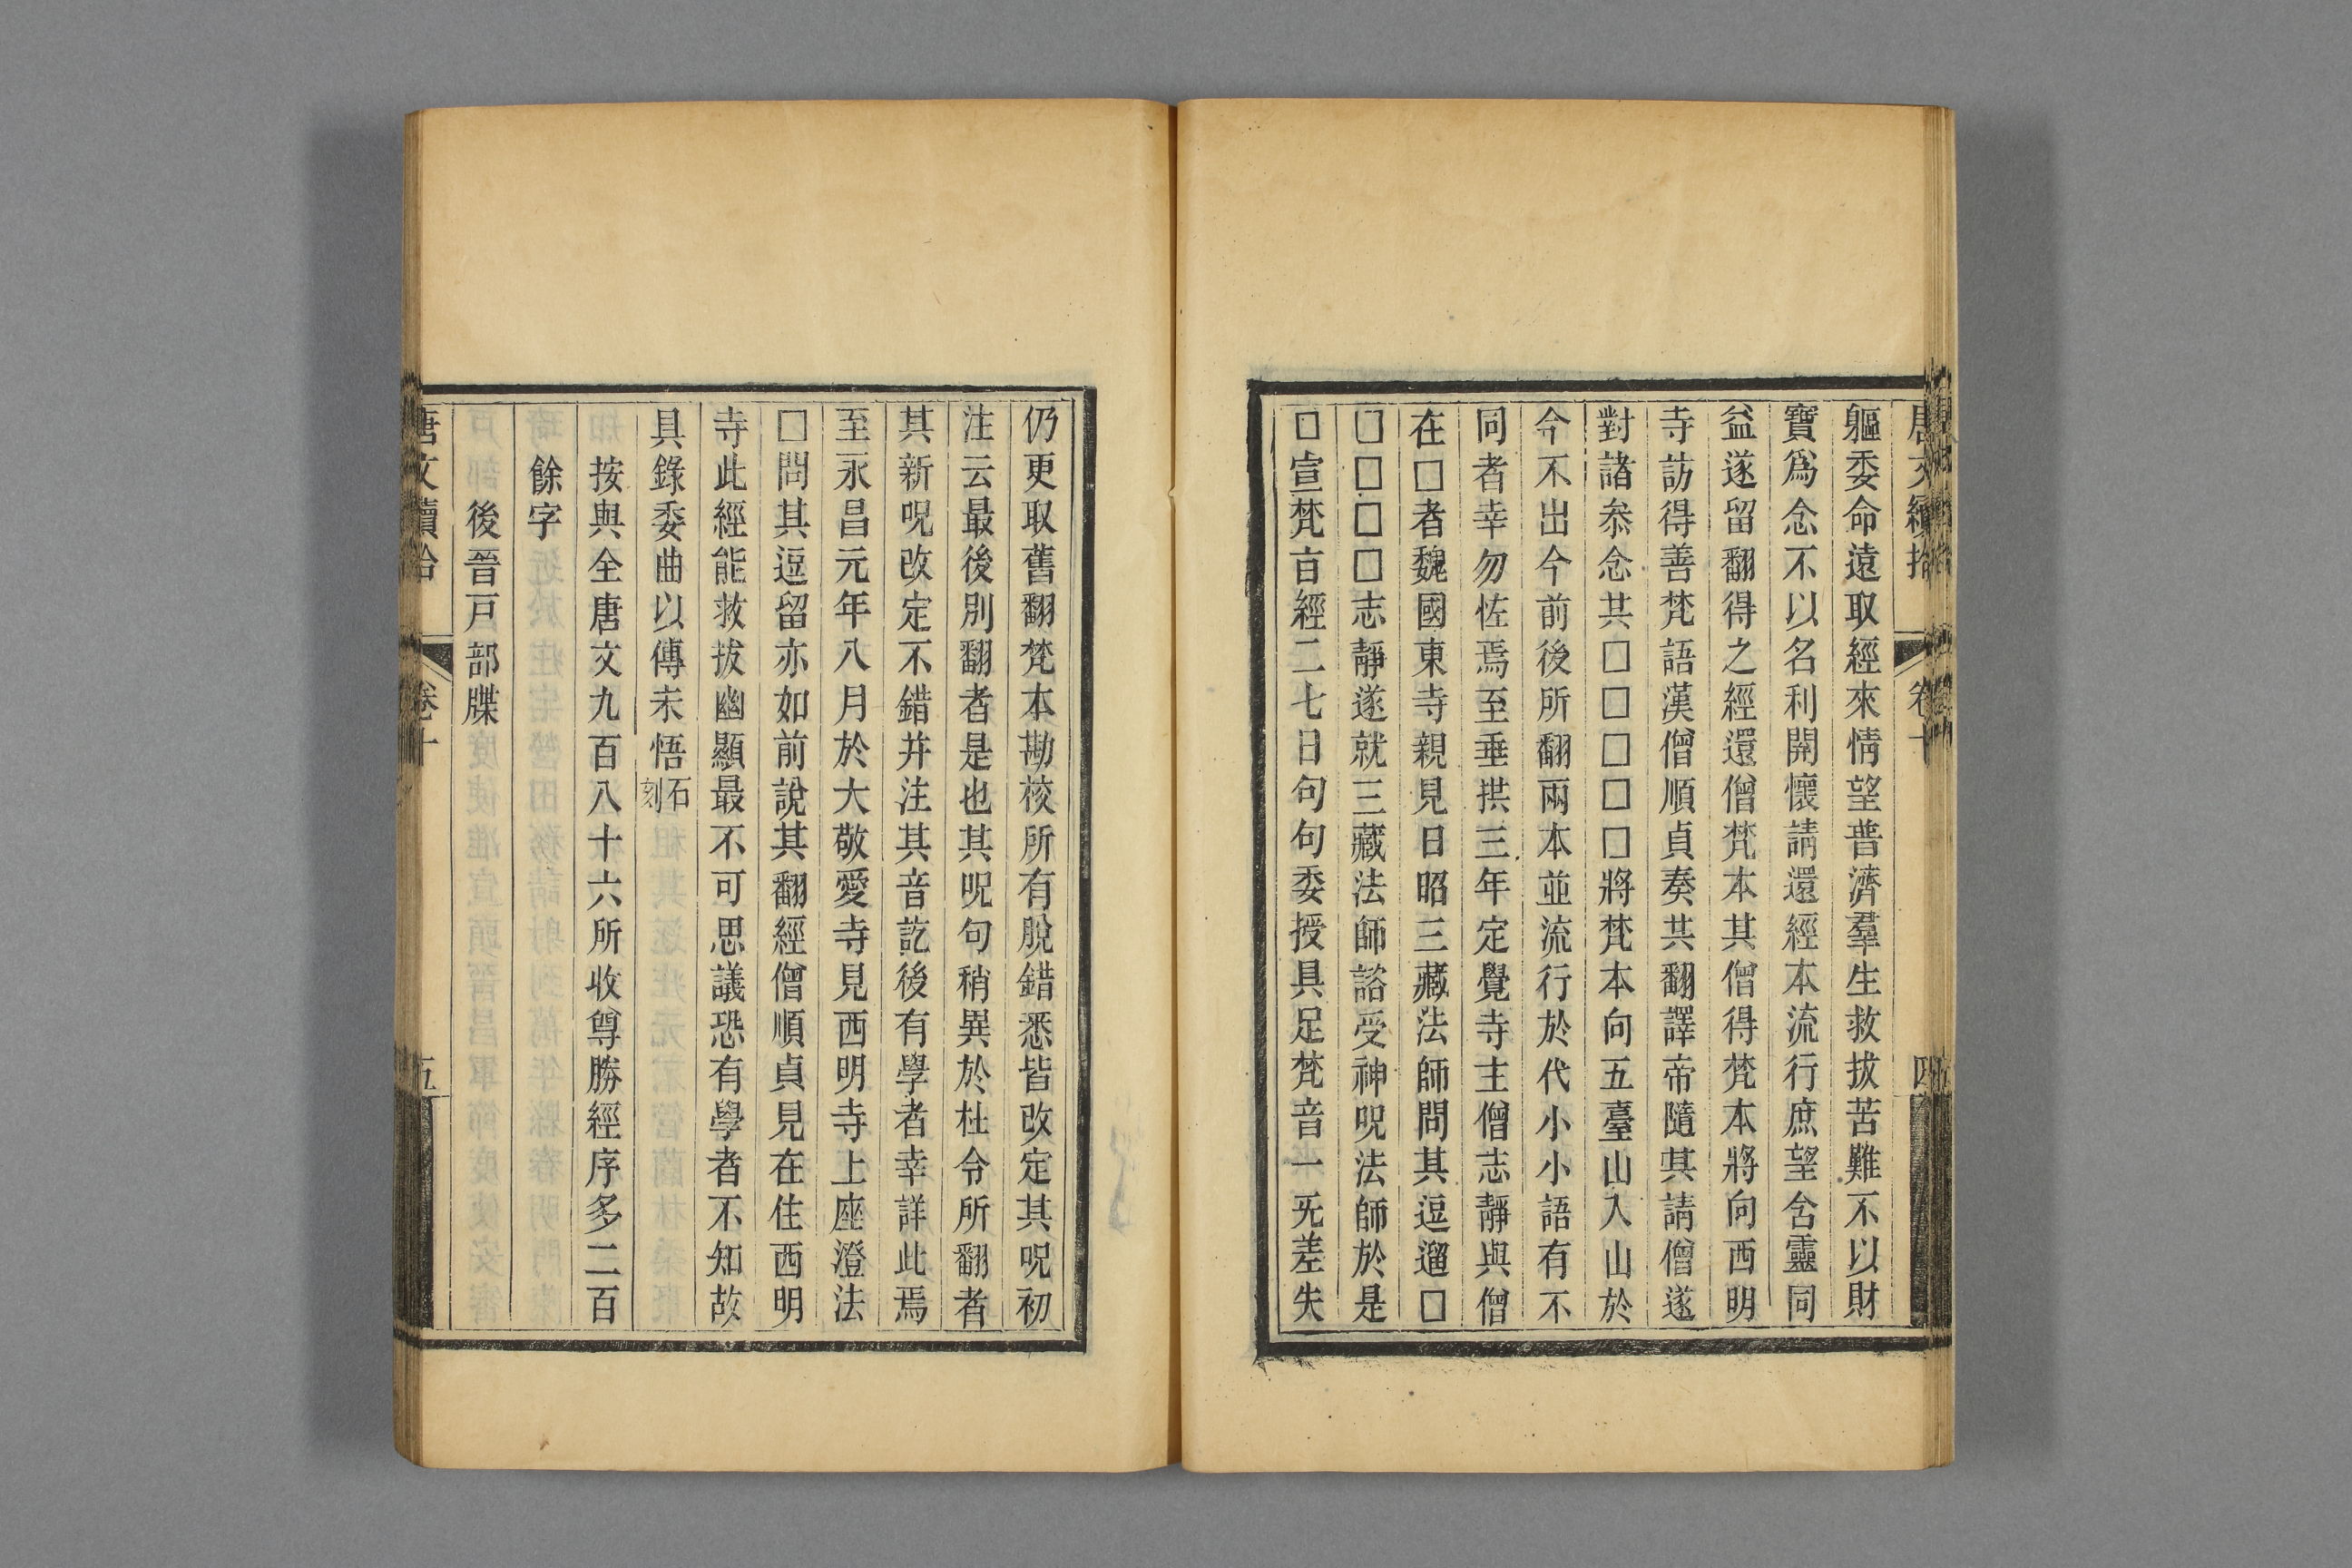 唐文續拾 卷十 四
軀委命遠取經來情望普濟羣生救拔苦難不以財
寶爲念不以名利開懷請還經本流行庶望含靈同
益遂留翻得之經還僧梵本其僧得梵本將向西明
寺訪得善梵語漢僧順貞奏共翻譯帝隨其請僧遂
對諸叅念共□□□□□將梵本向五臺山入山於
今不出今前後所翻兩本並流行於代小小語有不
同者幸勿恠焉至垂拱三年定覺寺主僧志靜與僧
在□者魏國東寺親見日昭三藏法師問其逗遛□
□□□□志靜遂就三藏法師諮受神呪法師於是
□宣梵音經二七日句句委授具足梵音一旡差失
仍更取舊翻梵本勘挍所有脫錯悉皆改定其呪初
注云最後別翻者是也其呪句稍異於杜令所翻者
其新呪改定不錯并注其音訖後有學者幸詳此焉
至永昌元年八月於大敬愛寺見西明寺上座澄法
□問其逗留亦如前說其翻經僧順貞見在住西明
寺此經能救拔幽顯最不可思議恐有學者不知故
具錄委曲以傳未悟石刻
按與全唐文九百八十六所收尊勝經序多二百
餘字
後晉戸部牒
唐文續拾 卷十 五